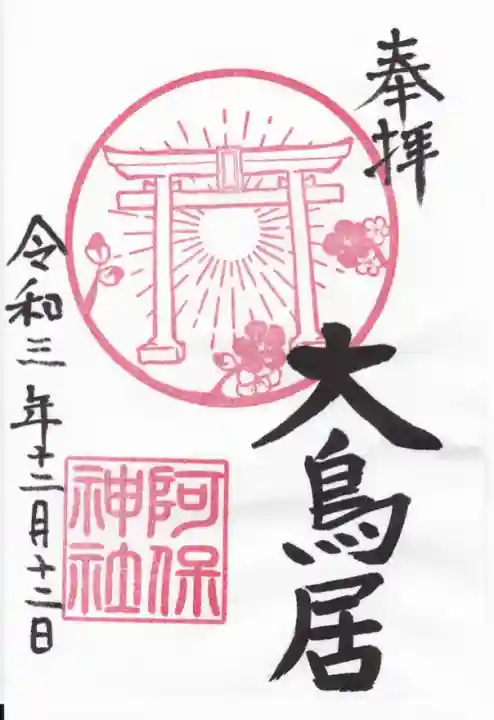 奉拝
大鳥居
阿保
神社
令和三年十二月十二日